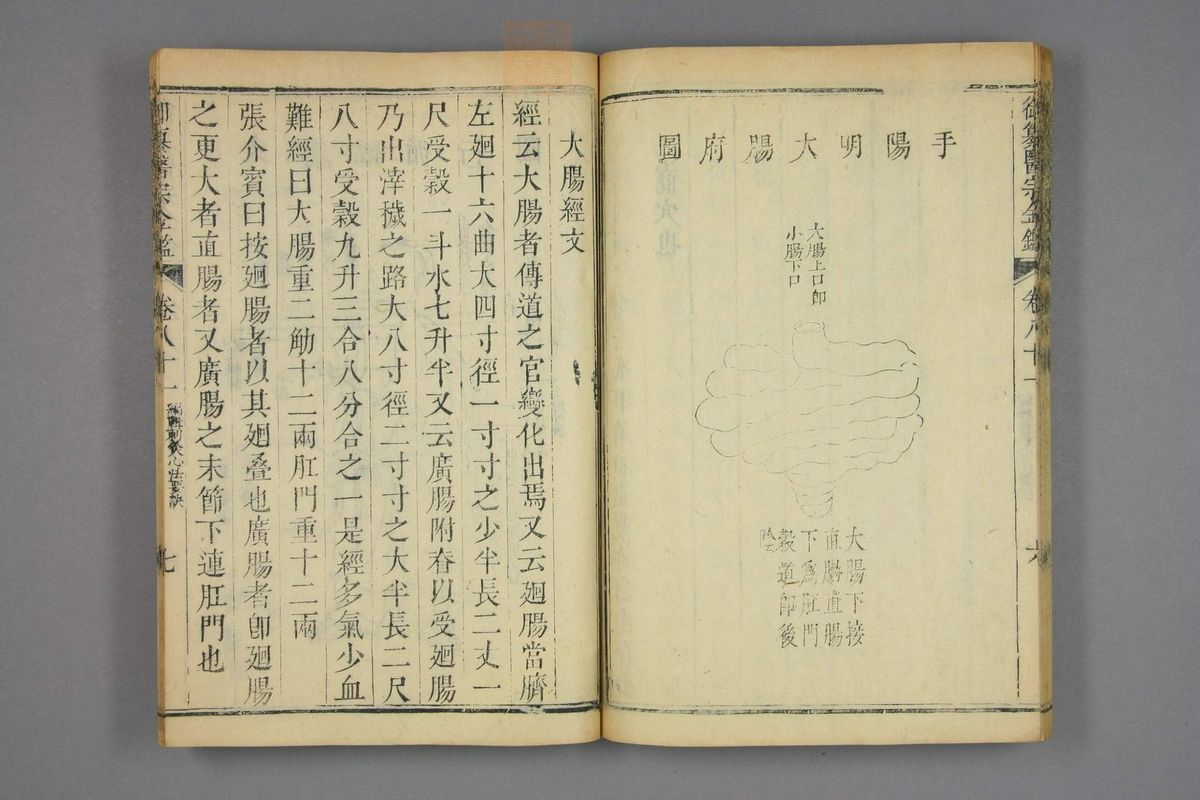 御纂醫宗金鑑
卷八十一
六
手陽明大腸府圖
大腸上口即
小腸下口
大腸下接
直腸直腸
下為肛門
穀道即後
陰云
大腸經文
經云大腸者傳道之官變化出焉又云廻腸當臍
左廻十六曲大四寸徑一寸寸之少半長二丈一
尺受穀一斗水七升半又云廣腸附脊以受廻腸
乃出滓穢之路大八寸徑二寸寸之大半長二尺
八寸受穀九升三合八分合之一是經多氣少血
難經曰大腸重二觔十二兩肛門重十二兩
張介賓曰按廻腸者以其廻疊也廣腸者即廻腸
之更大者直腸者又廣腸之末節下連肛門也
御纂醫宗金鑑
卷八十一
編輯刺灸心法要訣
七